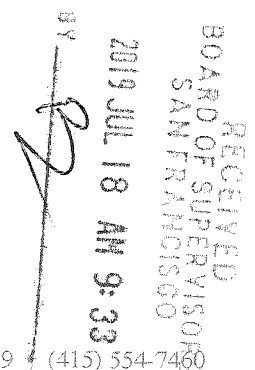 RECEIVED
BOARD OF SUPERVISOR
SAN FRANCISCO
2019 JUL 18 AM 9:33
BY
9 (415) 554-7460